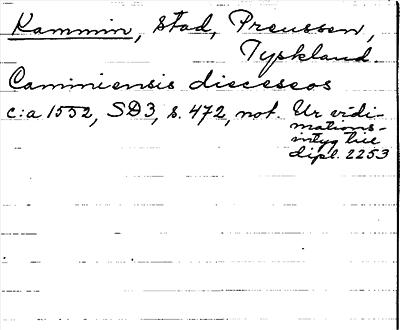 Kammin, stad, Preussen,
Tyskland.
Caminiensis dioceseos
c:a 1552, SD3, s. 472, not. Ur vidi-
mations-
intyg till
dipl. 2253